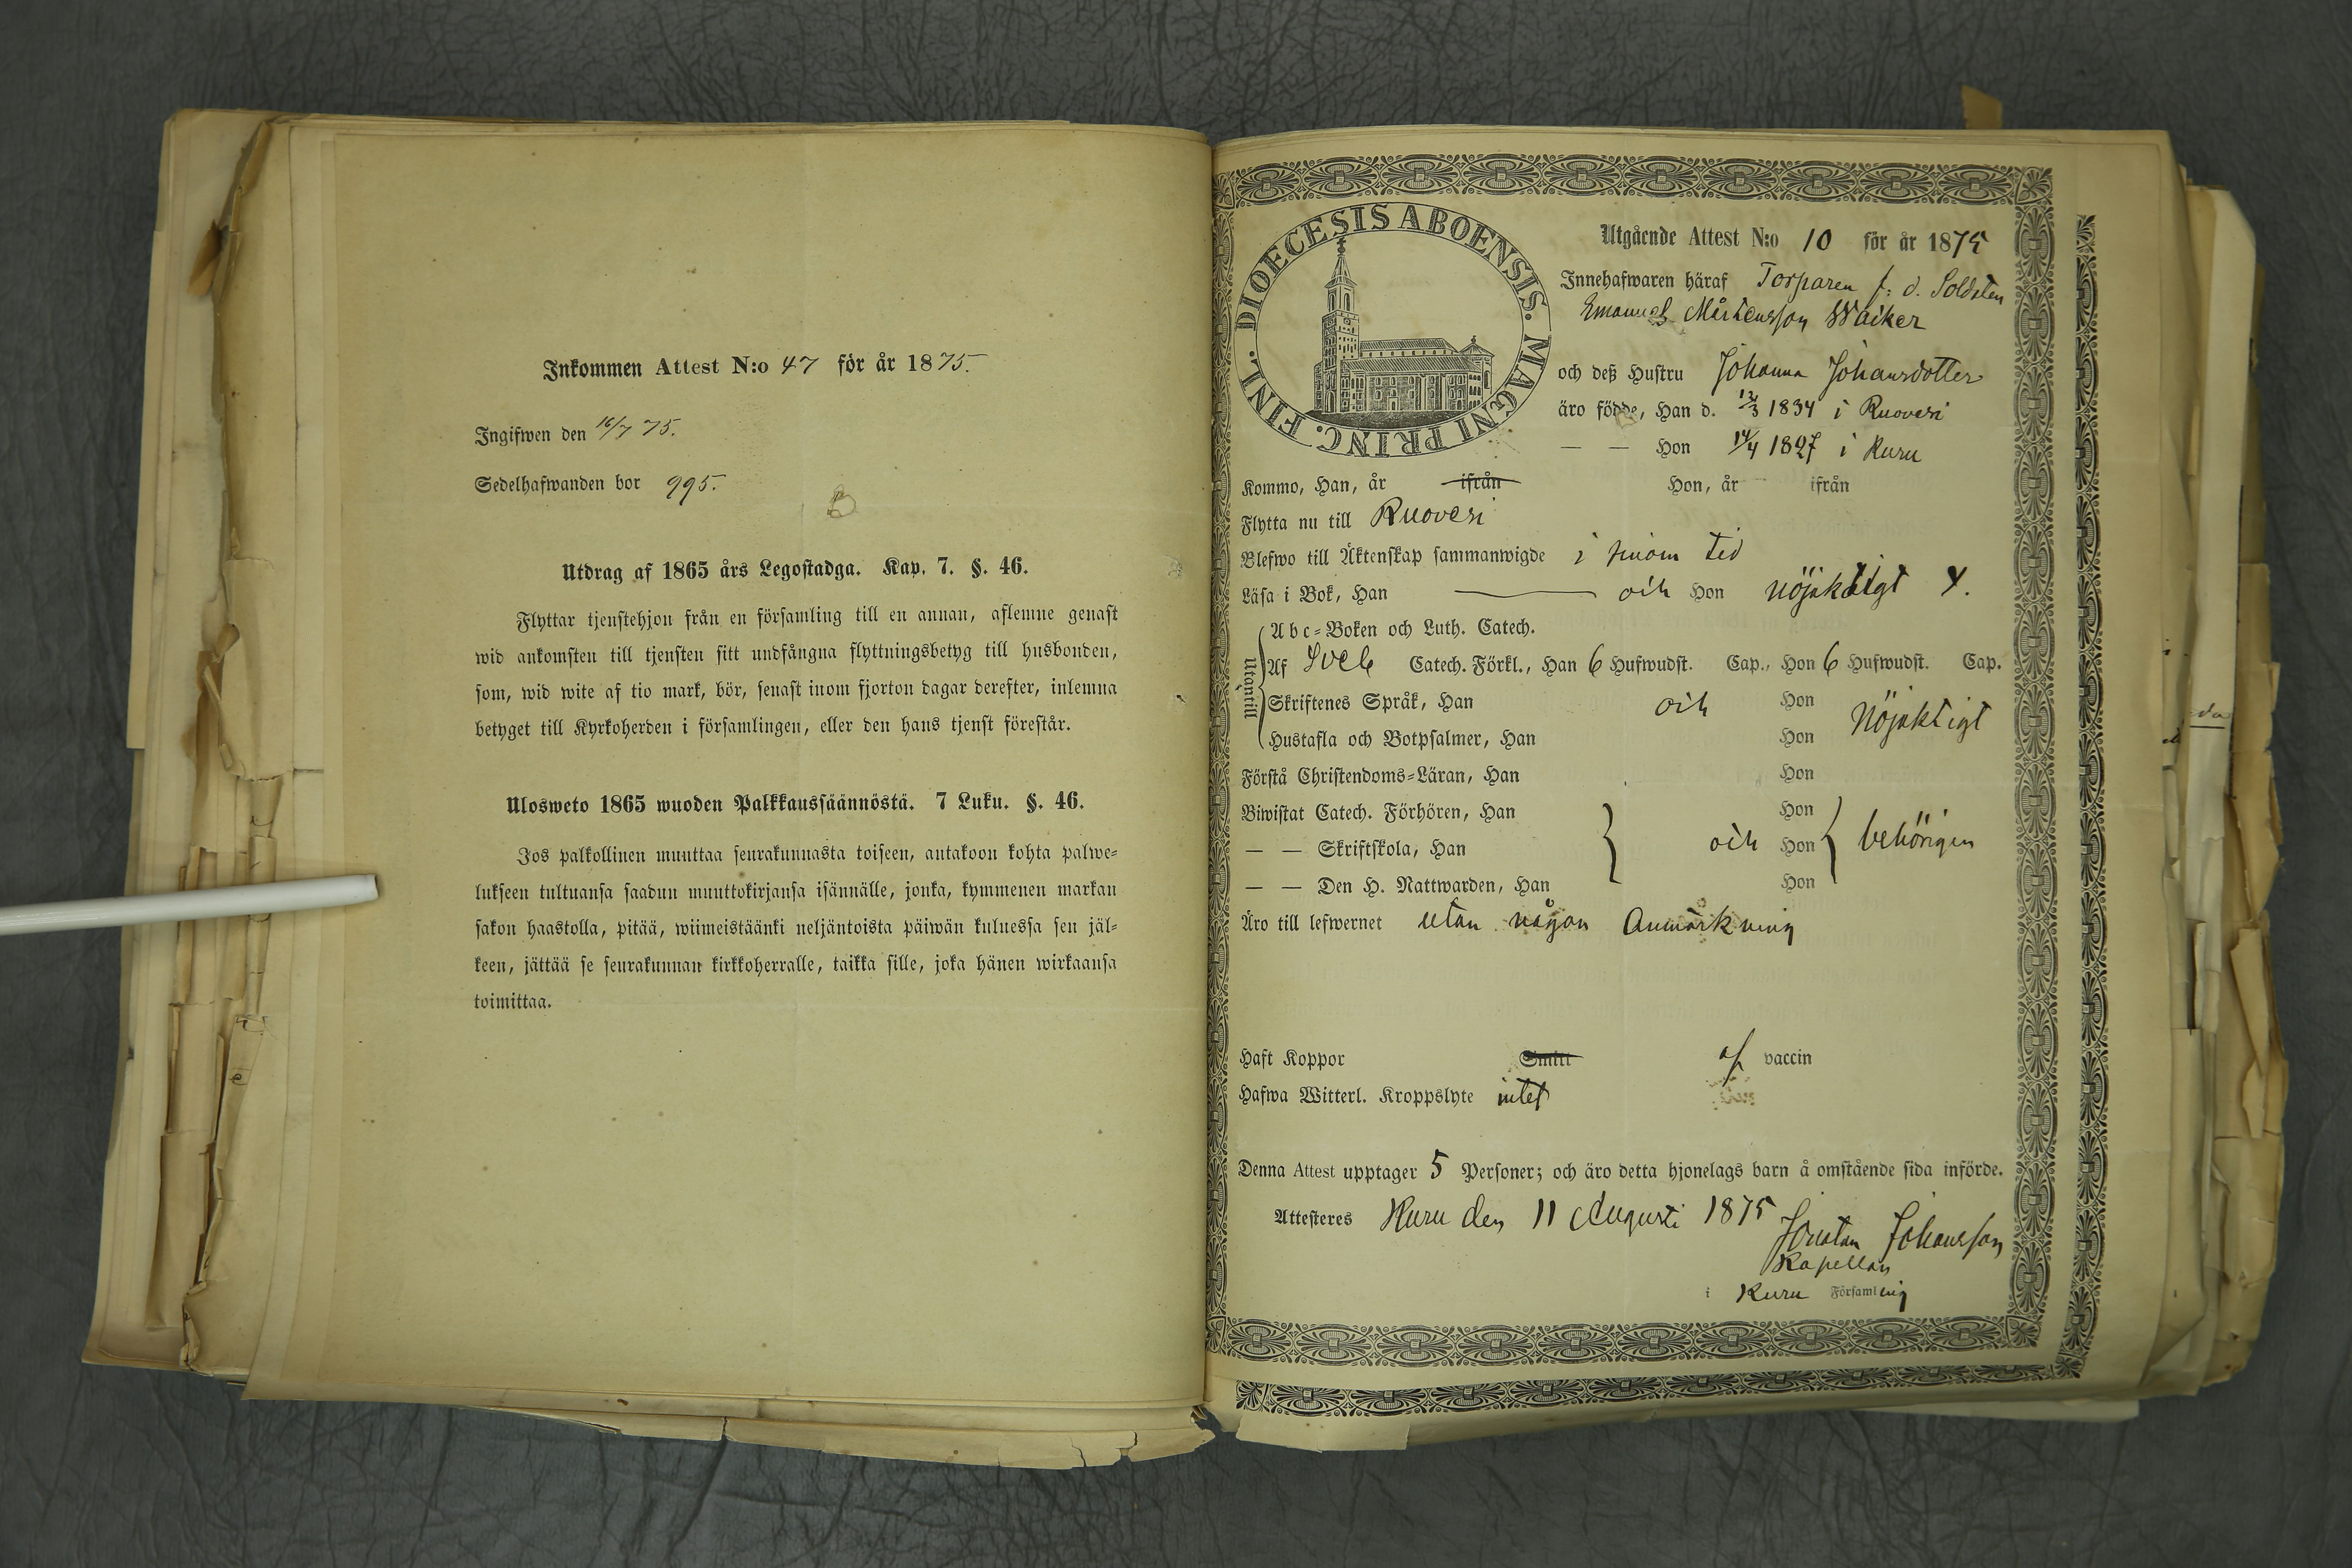 Inkommen Attest N:o 47 för år 1875.
Ingifwen den 16/7 75.
Sedelhafwanden bor 995.
Utdrag af 1865 års Legostadga. Kap. 7. §. 46.
Flyttar tjenstehjon från en församling till en annan, aflemne genast
wid ankomsten till tjensten sitt undfångna flyttningsbetyg till husbonden,
som, wid wite af tio mark, bör, senast inom fjorton dagar derefter, inlemna
betyget till Kyrkoherden i församlingen, eller den hans tjenst förestår.
Ulosweto 1865 wuoden Palkkaussäännöstä. 7 Luku. §. 46.
Jos palkollinen muuttaa seurakunnasta toiseen, antakoon kohta palwe-
lukseen tultuansa saadun muuttokirjansa isännälle, jonka, kymmenen markan
sakon haastolla, pitää, wiimeistäänki neljäntoista päiwän kuluessa sen jäl-
keen, jättää se seurakunnan kirkkoherralle, taikka sille, joka hänen wirkaansa
toimittaa.
DIOECESIS ABOENSIS. MAGNI PRINC. FINL.
Utgående Attest N:o 10 för år 1875
Innehafwaren häraf Torparen f. d. Soldaten
Emanuel Mårtensson Waiker
och deß Hustru Johanna Johansdotter
äro födde, Han d. 1834 i Ruovesi
— — Hon 14/4 1827 i Kuru
Kommo, Han, år ifrån Hon, år ifrån
Flytta nu till Ruovesi
Blefwo till Äktenskap sammanwigde i sinom tid
Läsa i Bok, Han — och Hon nöjaktigt
Abc-Boken och Luth. Catech.
Utantill
Af Sveb Catech. Förkl., Han 6 Hufwudst. Cap., Hon 6 Hufwudst. Cap.
Skriftenes Språk, Han och Hon Nöjaktigt
Hustafla och Botpsalmer, Han Hon
Förstå Christendoms-Läran, Han Hon
Biwistat Catech. Förhören, Han Hon
— — Skriftskola, Han och Hon behörigen
— — Den H. Nattwarden, Han Hon
Äro till lefwernet utan någon Anmärkning
Haft Koppor Smitt af vaccin
Hafwa Witterl. Kroppslyte intet
Denna Attest upptager 5 Personer; och äro detta hjonelags barn å omstående sida införde.
Attesteres Kuru den 11 Augusti 1875
Jonatan Johansson
Kapellan
i Kuru Församling